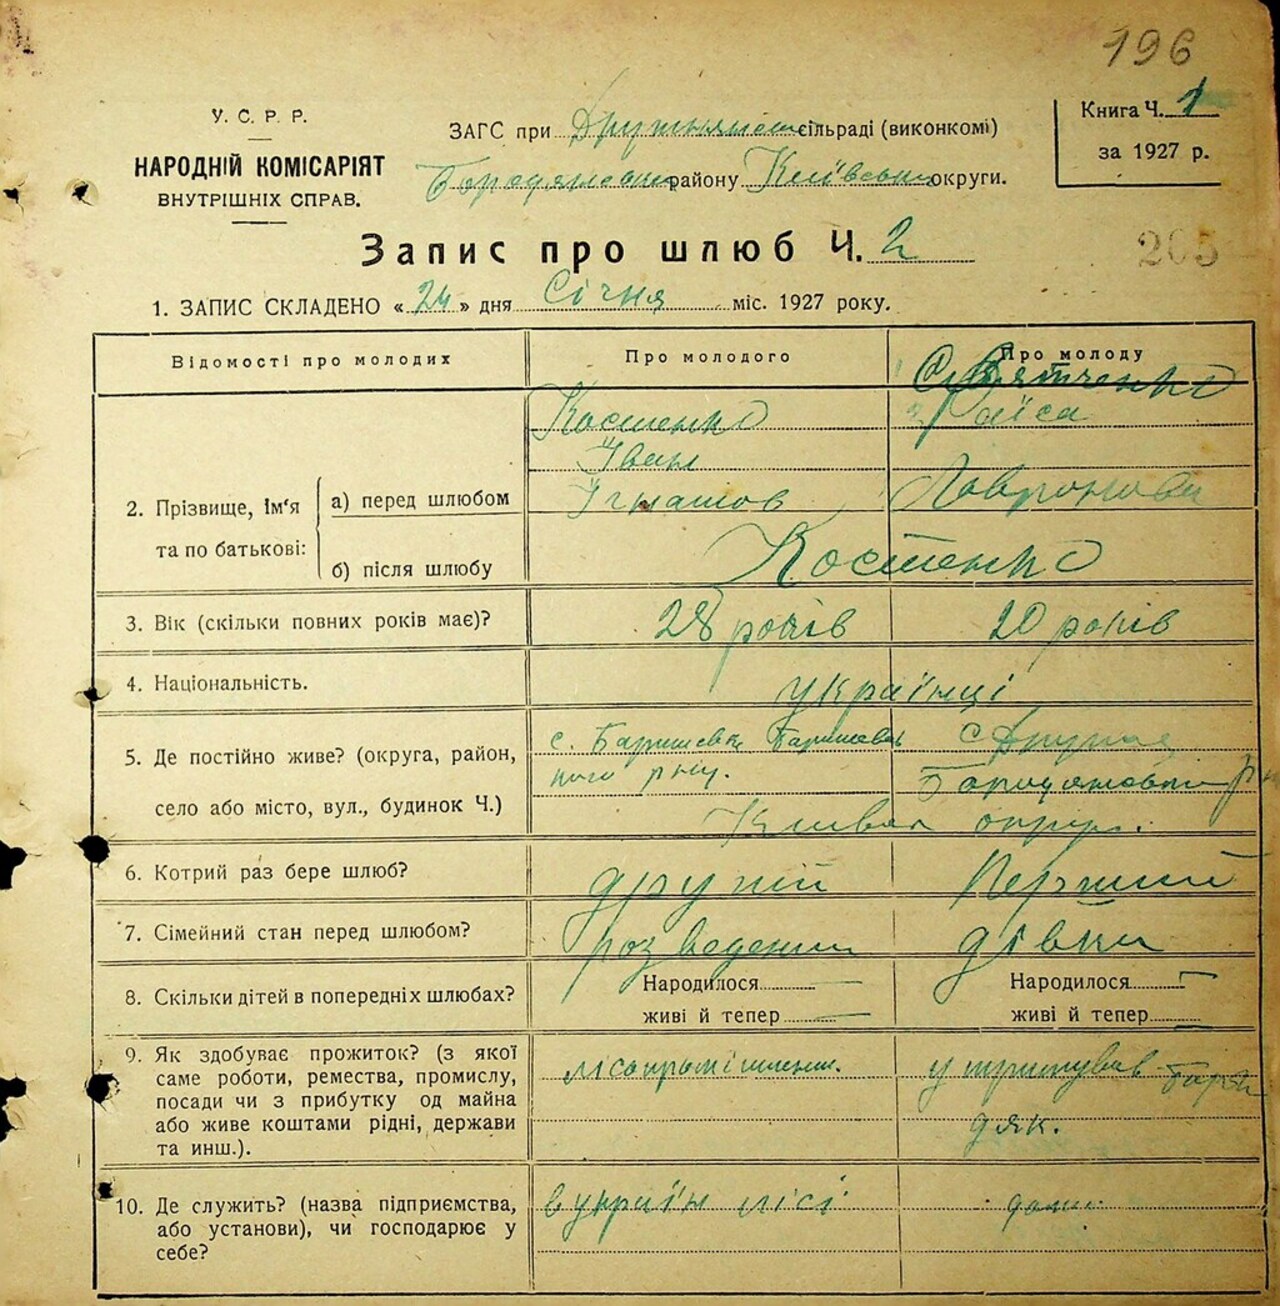 196
У. С. Р. Р.
НАРОДНІЙ КОМІСАРІЯТ
ВНУТРІШНІХ СПРАВ.
ЗАГС при сільраді (виконкомі)
району Київськ округи.
Книга Ч. 1
за 1927 р.
205
Запис про шлюб Ч. 2
1. ЗАПИС СКЛАДЕНО « 24 » дня Січня міс. 1927 року.
Відомості про молодих
Про молодого
Про молоду
2. Прізвище, ім'я та по батькові:
а) перед шлюбом
б) після шлюбу
Костенко
Іван
Ігнатов
Раїса
Костенко
3. Вік (скільки повних років має)?
28 років
20 років
4. Національність.
українці
5. Де постійно живе? (округа, район,
село або місто, вул., будинок Ч.)
с. Баришевка
6. Котрий раз бере шлюб?
другий
Перший
7. Сімейний стан перед шлюбом?
розведений
дівка
8. Скільки дітей в попередніх шлюбах?
Народилося —
живі й тепер —
Народилося —
живі й тепер —
9. Як здобуває прожиток? (з якої
саме роботи, ремества, промислу,
посади чи з прибутку од майна
або живе коштами рідні, держави
та инш.).
дяк.
10. Де служить? (назва підприємства,
або установи), чи господарює у
себе?
в україн лісі
дома